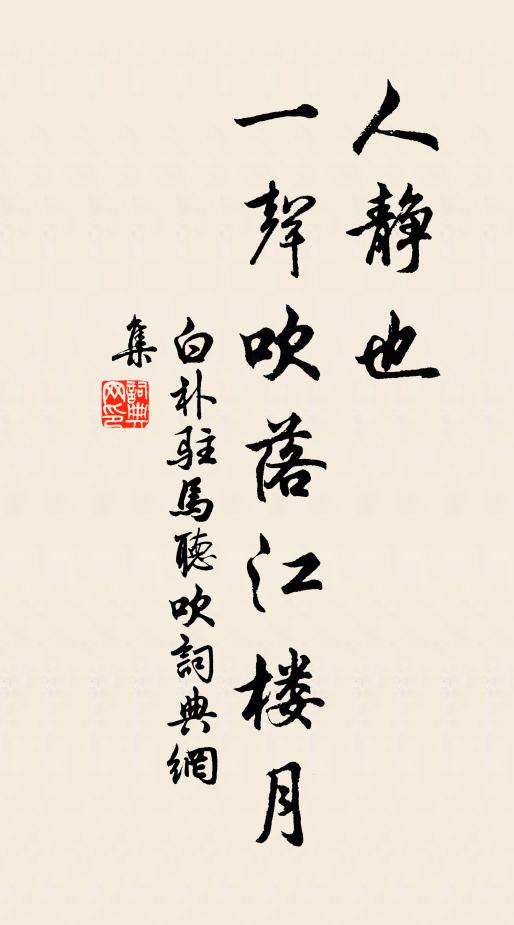 人静也
一聲吹落江楼月
白朴駐馬聽吹詞典網
集
詞典
网印